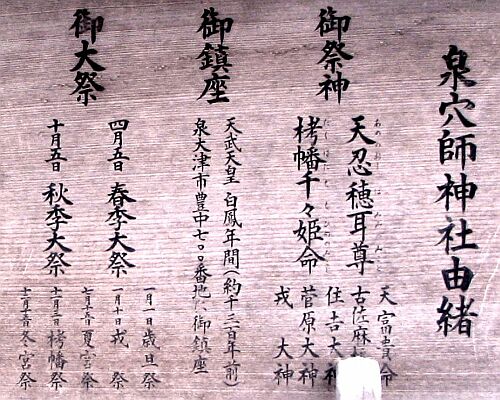 泉穴師神社由緒
御祭神
天忍穂耳尊
栲幡千々姫命
天冨貴命
古佐麻
住吉大神
菅原大神
戎 大神
御鎮座
天武天皇 白鳳年間(約千三百年前)
泉大津市豊中七〇〇番地 御鎮座
御大祭
四月五日 春季大祭
十月五日 秋季大祭
一月一日歳旦祭
一月十日戎 祭
夏宮祭
栲幡祭
冬宮祭